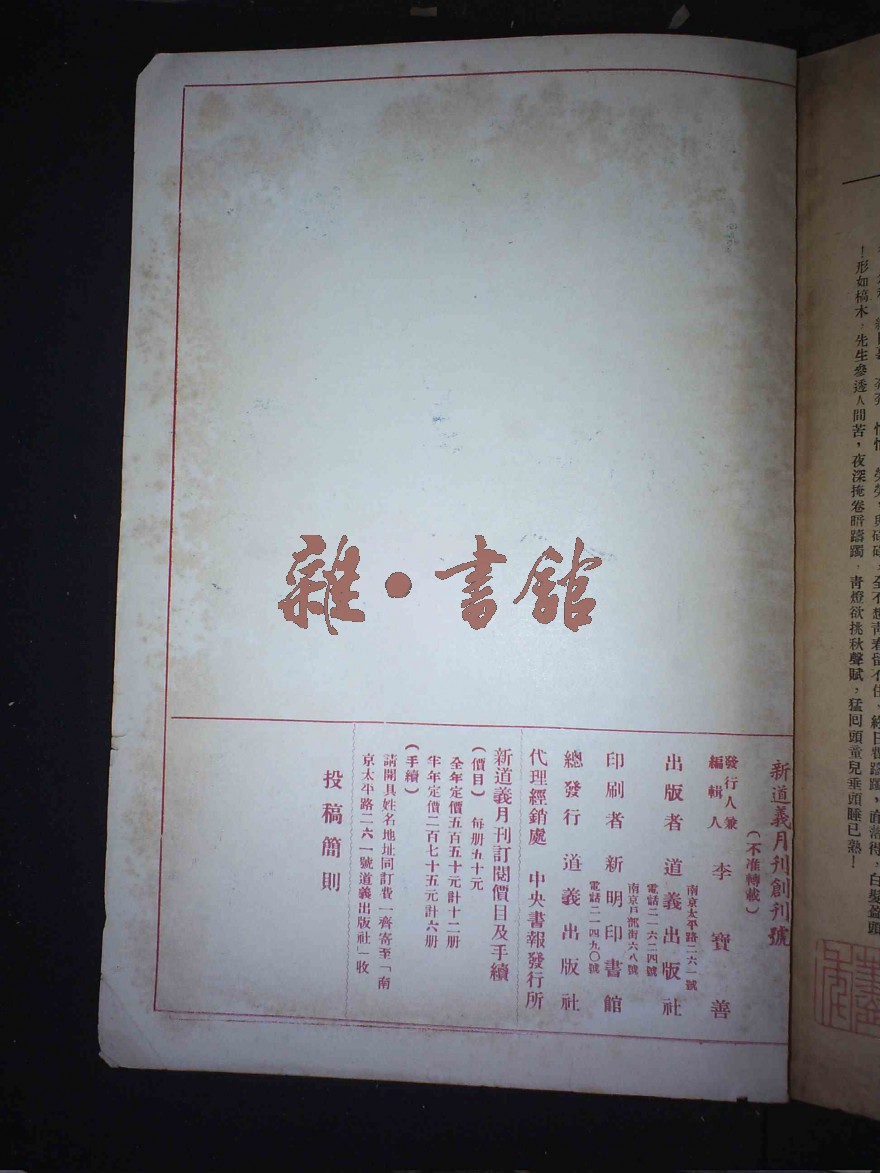 ！形如槁木，先生參透人間苦，夜深掩卷眙躊躅，青燈欲挑秋聲賦，猛回頭童兒垂頭睡已熟！
雜·書館
新道義月刊創刊號
（不准轉載）
發行人兼
編輯人 李寶善
南京太平路二六一號
出版者 道義出版社
電話二一六二四號
南京戶部街六八號
印刷者 新明印書館
電話二一四九〇號
總發行 道義出版社
代理經銷處 中央書報發行所
新道義月刊訂閱價目及手續
（價目） 每册五十元
全年定價五百五十元計十二册
半年定價二百七十五元計六册
（手續）
請開具姓名地址同訂費一齊寄至「南
京太平路二六一號道義出版社」收
投稿簡則